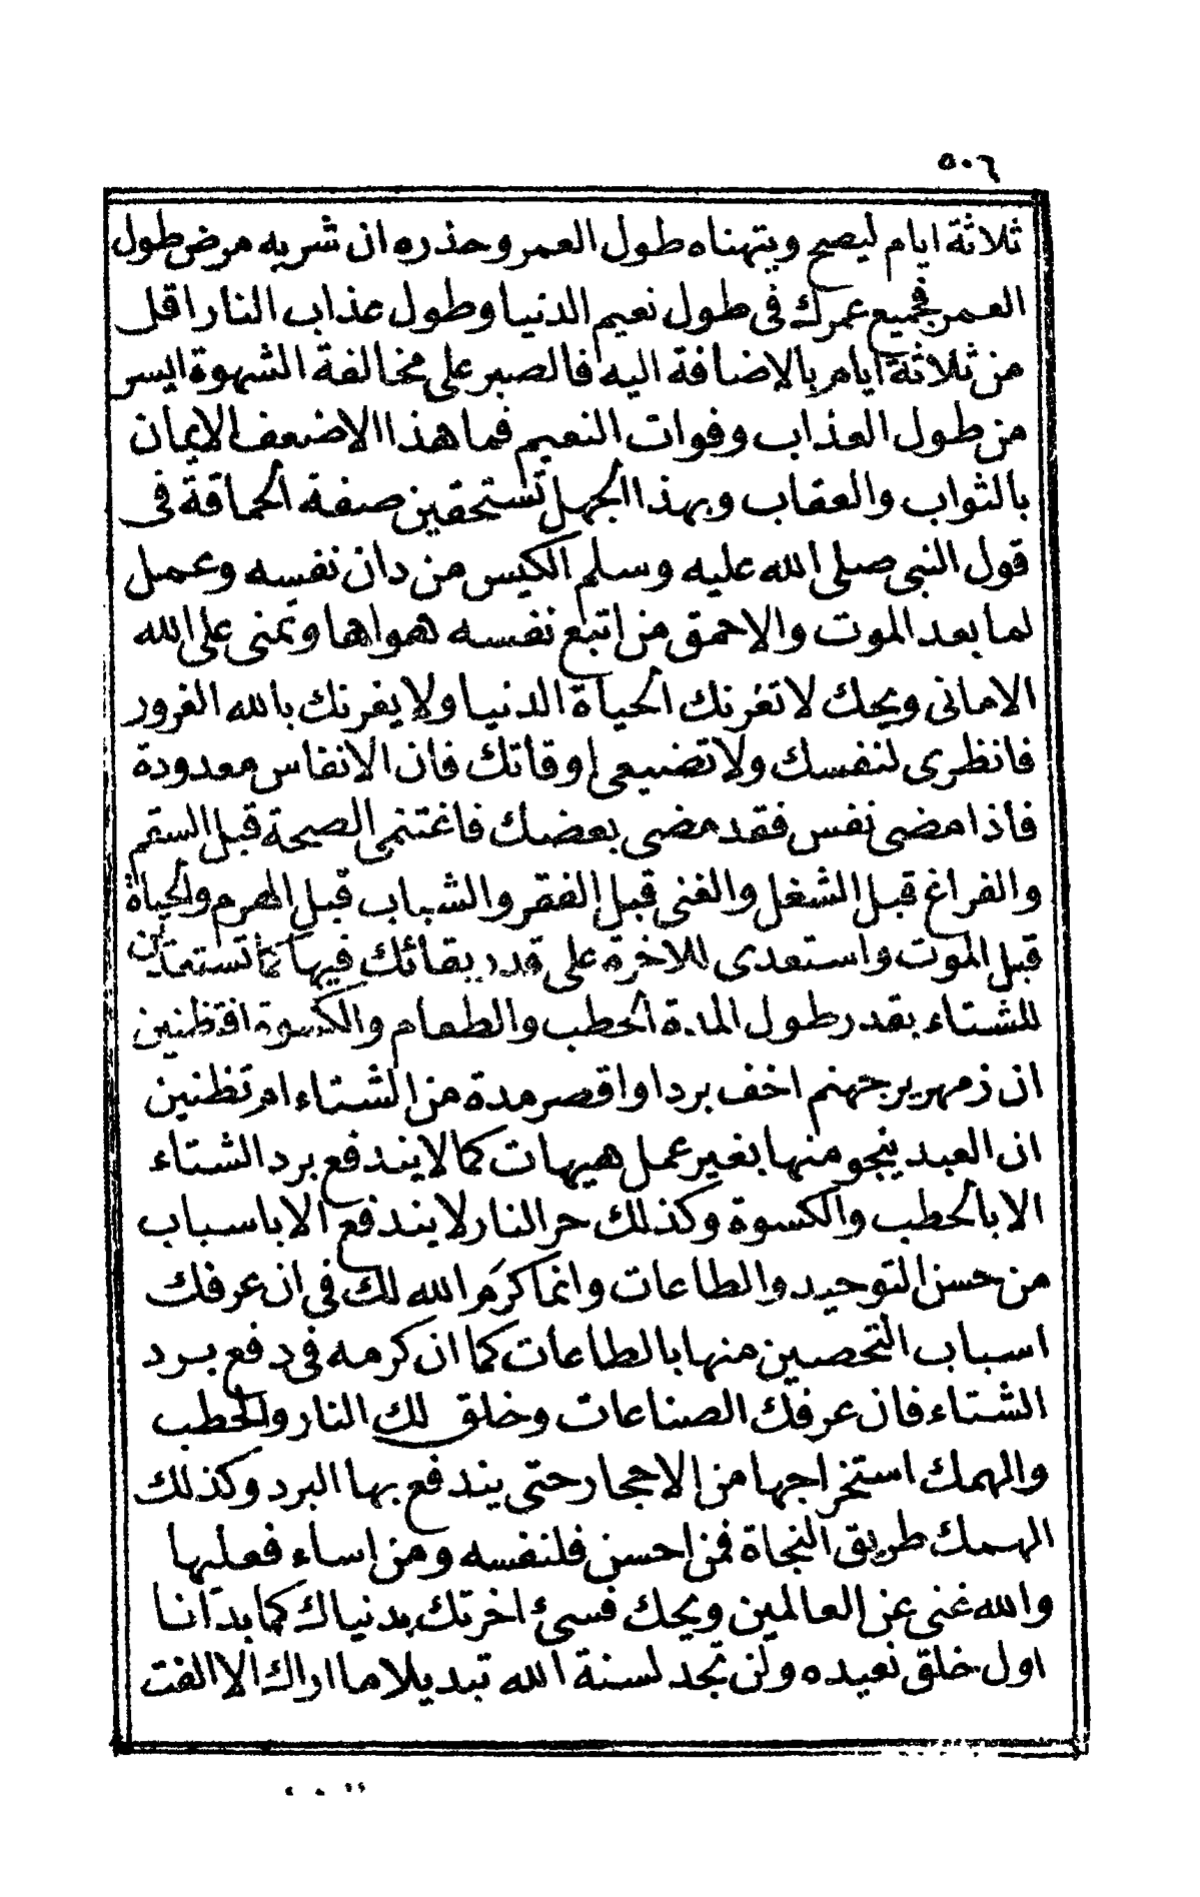 ٥٠٦
ثلاثة ايام ليصح ويتهناه طول العمر وحذره ان شربه مرض طول
العمر فجميع عمرك فى طول نعيم الدنيا وطول عذاب النار اقل
من ثلاثة ايام بالاضافة اليه فالصبر على مخالفة الشهوة ايسر
من طول العذاب وفوات النعيم فما هذا الا ضعف الايمان
بالثواب والعقاب وبهذا الجهل تستحقين صفة الحماقة فى
قول النبى صلى الله عليه وسلم الكيس من دان نفسه وعمل
لما بعد الموت والاحمق من اتبع نفسه هواها وتمنى على الله
الامانى ويحك لا تغرنك الحياة الدنيا ولا يغرنك بالله الغرور
فانظرى لنفسك ولا تضيعى اوقاتك فان الانفاس معدودة
فاذا مضى نفس فقد مضى بعضك فاغتنمى الصحة قبل السقم
والفراغ قبل الشغل والغنى قبل الفقر والشباب قبل الهرم والحياة
قبل الموت واستعدى للاخرة على قدر بقائك فيها كما تستعدين
للشتاء بقدر طول المدة الحطب والطعام والكسوة افتظنين
ان زمهرير جهنم اخف بردا واقصر مدة من الشتاء ام تظنين
ان العبد ينجو منها بغير عمل هيهات كما لا يندفع برد الشتاء
الا بالحطب والكسوة وكذلك حر النار لا يندفع الا باسباب
من حسن التوحيد والطاعات وانما كرم الله لك فى ان عرفك
اسباب التحصين منها بالطاعات كما ان كرمه فى دفع برد
الشتاء فان عرفك الصناعات وخلق لك النار والحطب
والهمك استخراجها من الاحجار حتى يندفع بها البرد وكذلك
الهمك طريق النجاة فمن احسن فلنفسه ومن اساء فعليها
والله غنى عن العالمين ويحك فسئ اخرتك بدنياك كما بدأنا
اول خلق نعيده ولن تجد لسنة الله تبديلا ما اراك الا الفت